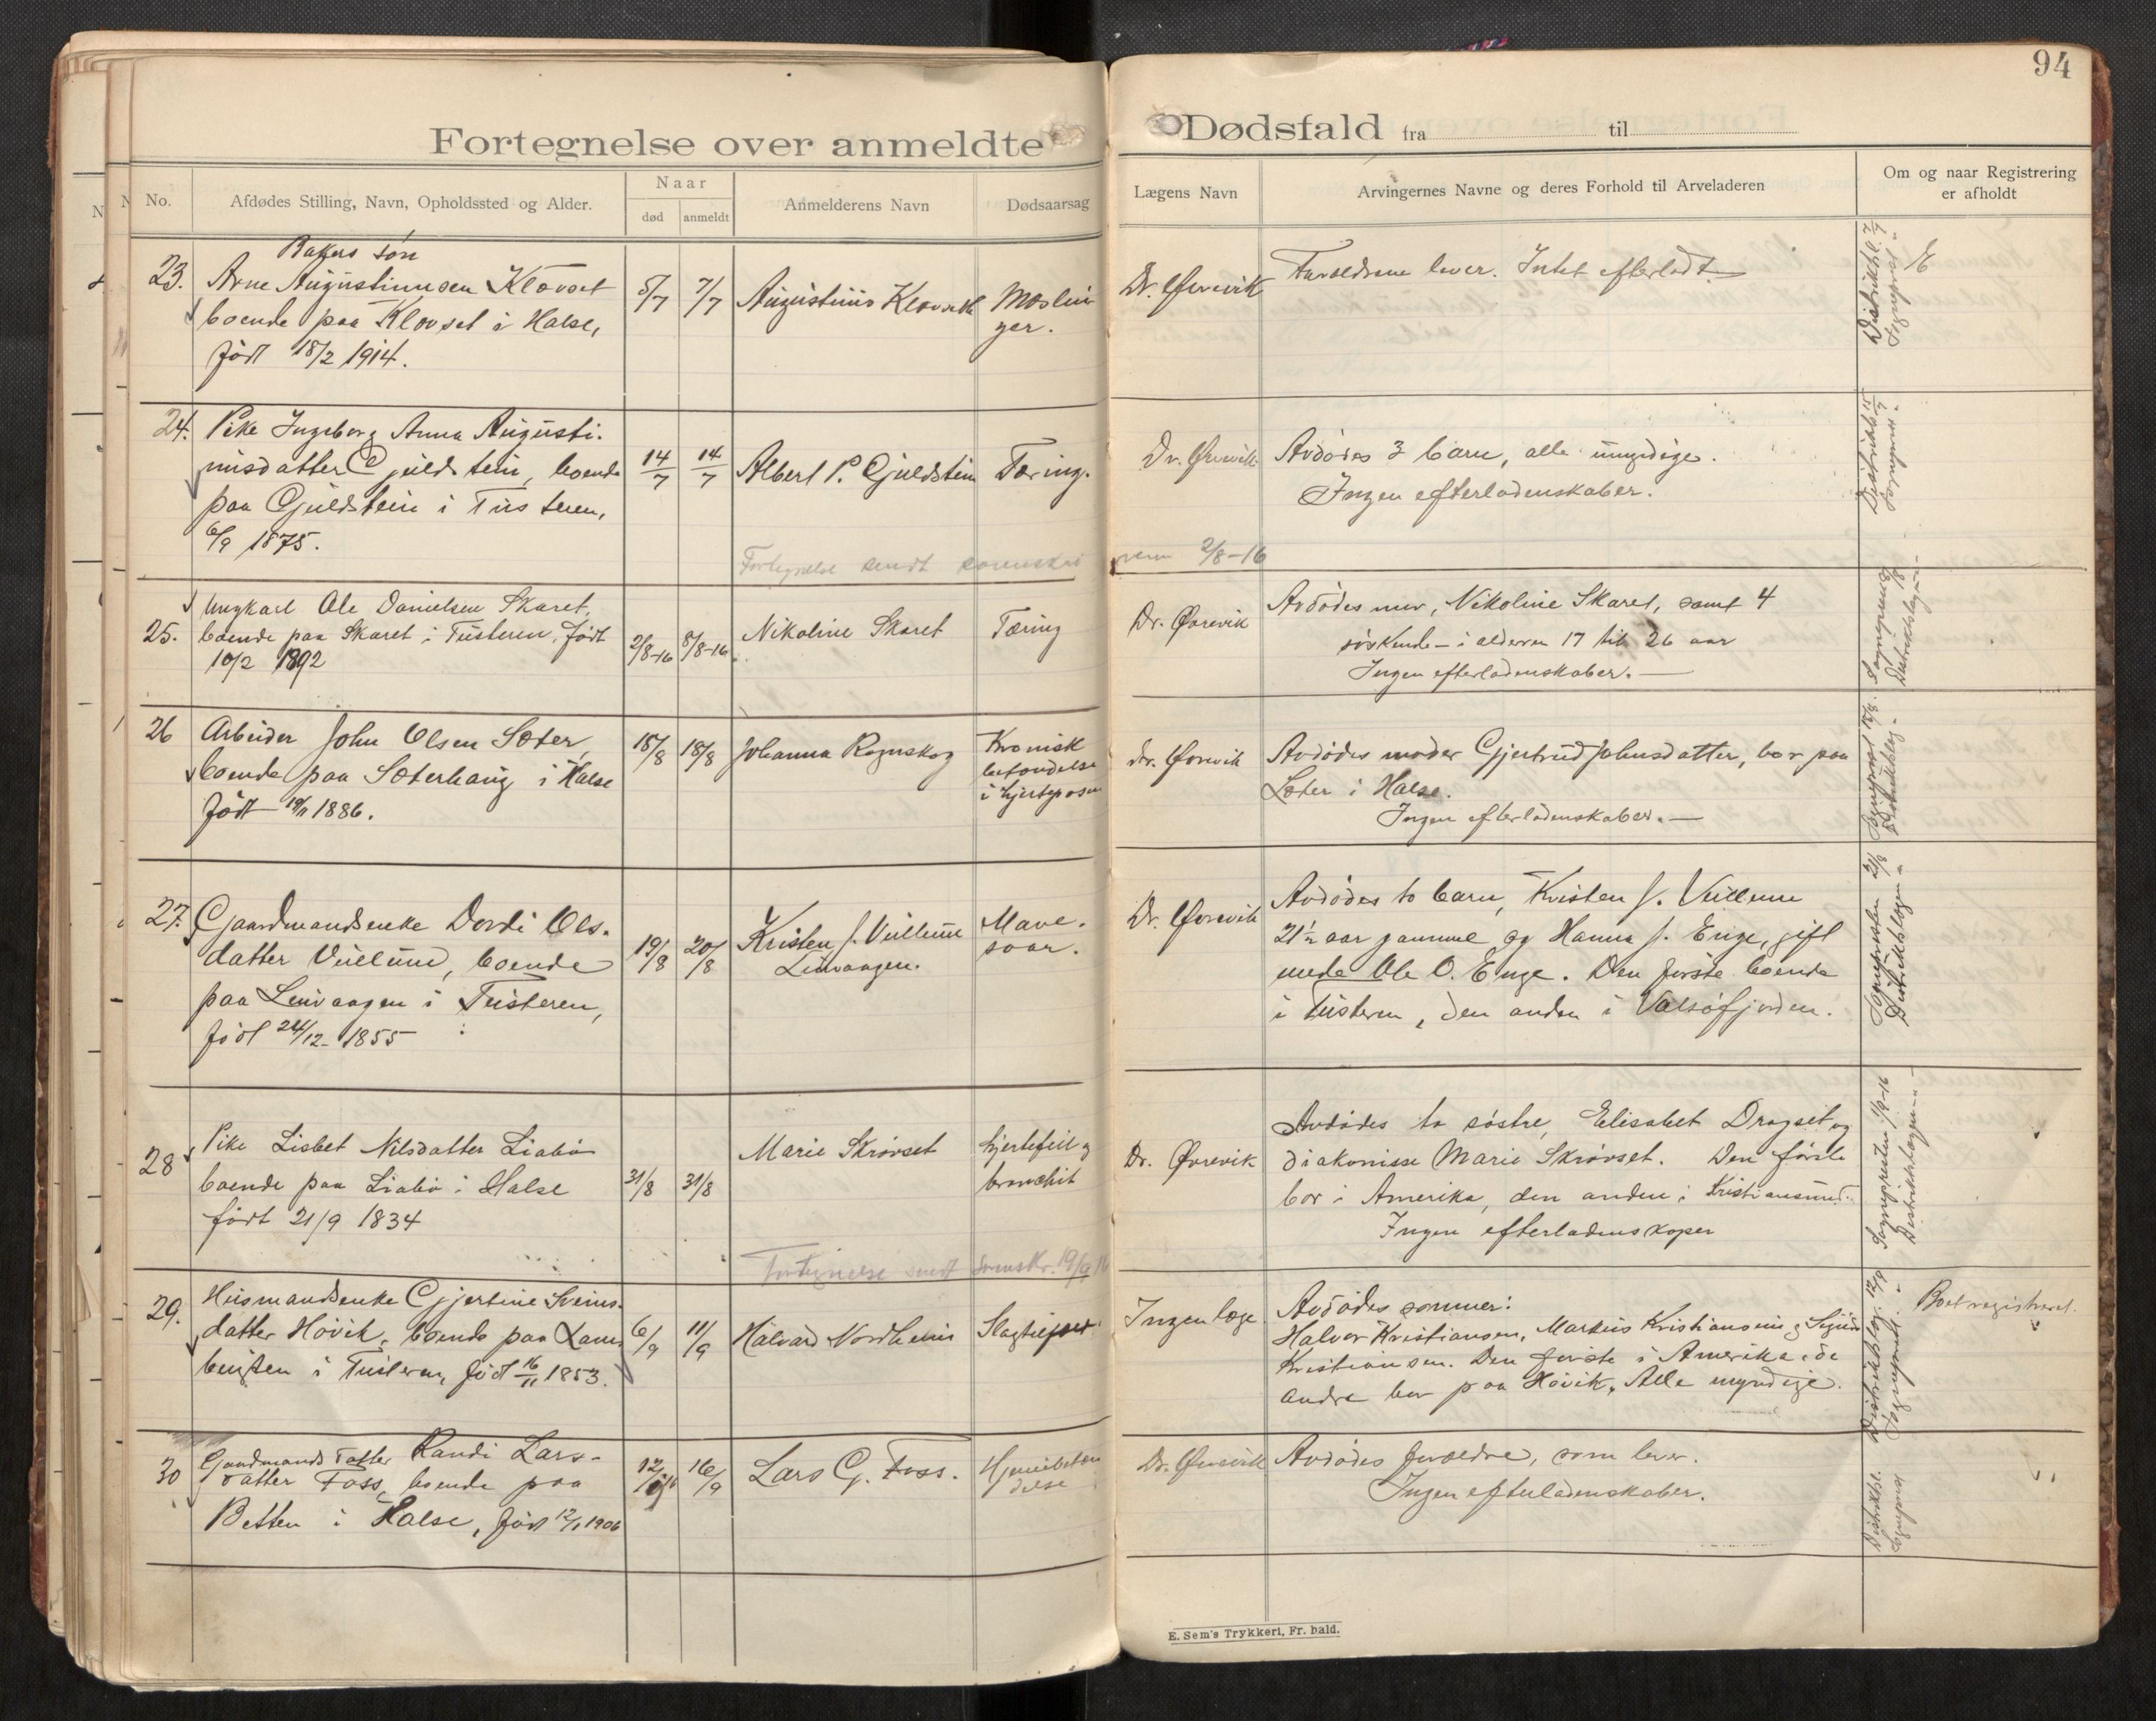 94
Fortegnelse over anmeldte Dødsfald fra til
No.
Afdødes Stilling, Navn, Opholdssted og Alder.
Naar
død anmeldt
Anmelderens Navn
Dødsaarsag
Lægens Navn
Arvingernes Navne og deres Forhold til Arveladeren
Om og naar Registrering
er afholdt
Bakers søn
23. Arne Augustinusen Klevset
boende paa Klevset i Halse,
født 18/2 1914.
5/7 7/7
Augustinus Klevseth
Mæslin
ger.
Dr. Ørevik
Forældrene lever. Intet efterladt
24. Pike Ingeborg Anna Augusti-
nusdatter Gjuldstein, boende
paa Gjuldstein i Tusteren,
6/9 1875.
14/7 14/7
Albert P. Gjuldstein
Tæring.
Dr. Ørevik
Avdødes 3 barn, alle umyndige.
Ingen efterladenskaber.
Fortegnelse sendt sorenskri
veren 2/8-16
25. Ungkarl Ole Danielsen Skaret,
boende paa Skaret i Tusteren, født
10/2 1892
2/8-16 8/8-16
Nikoline Skaret
Tæring
Dr. Ørevik
Avdødes mor, Nikoline Skaret, samt 4
søskende - i alderen 17 til 26 aar
Ingen efterladenskaber.
26 Arbeider John Olsen Sæter,
boende paa Sæterhaug i Halse
født 19/11 1886.
18/8 18/8
Johanna Rognskog
Kronisk
betændelse
i hjerteposen
dr. Ørevik
Avdødes moder Gjertrud Johnsdatter, bor paa
Sæter i Halse.
Ingen efterladenskaber.
27. Gaardmandsenke Dordi Ols-
datter Vullum, boende
paa Leirvaagen i Tusteren,
født 24/12 1855
19/8 20/8
Kristen J. Vullum
Leirvaagen.
Mave-
saar.
Dr. Ørevik
Avdødes to barn, Kristen J. Vullum
21½ aar gammel og Hanna J. Enge, gift
med Ole O. Enge. Den første boende
i Tusteren, den anden i Valsøfjorden.
28 Pike Lisbet Nilsdatter Liabø
boende paa Liabø i Halse
født 21/9 1834
31/8 31/8
Marie Skrøvset
hjertefeil og
bronchit
Dr. Ørevik
Avdødes to søstre, Elisabet Dragset og
diakonisse Marie Skrøvset. Den første
bor i Amerika, den anden i Kristiansund.
Ingen efterladenskaper
Fortegnelse sendt sorenskr. 19/9 16
29. Husmandsenke Gjertine Sveins-
datter Høvik, boende paa
i Tusteren, født 16/11 1853.
6/9 11/9
Halvard Nordheim
Ingen læge
Avdødes sønner:
Halvor Kristiansen, Markus Kristiansen og
Kristiansen. Den første i Amerika, de
andre bor paa Høvik. Alle myndige.
Boet registreret.
30 Gaardmandsdatter Randi Lars-
datter Foss, boende paa
Betten i Halse, født 12/1 1906
12/9 16/9
Lars G. Foss.
Hjernebetæn
delse
Dr. Ørevik
Avdødes forældre, som lever.
Ingen efterladenskaber.
E. Sem's Trykkeri, Fr. hald.